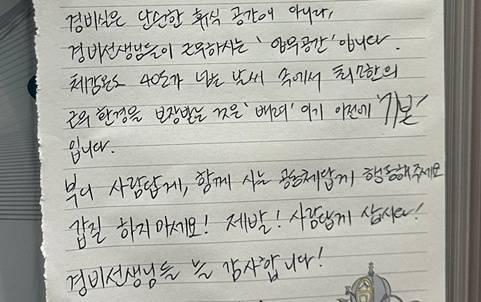 경비실은 단순한 휴식 공간이 아니라,
경비선생님들이 근무하시는 '업무공간' 입니다.
체감온도 40도가 넘는 날씨 속에서 최소한의
근무 환경을 보장받는 것은 '배려' 이기 이전에 '기본'
입니다.
부디 사람답게, 함께 사는 공동체답게 행동해주세요
갑질 하지 마세요! 제발! 사람답게 삽시다!
경비선생님들 늘 감사합니다!